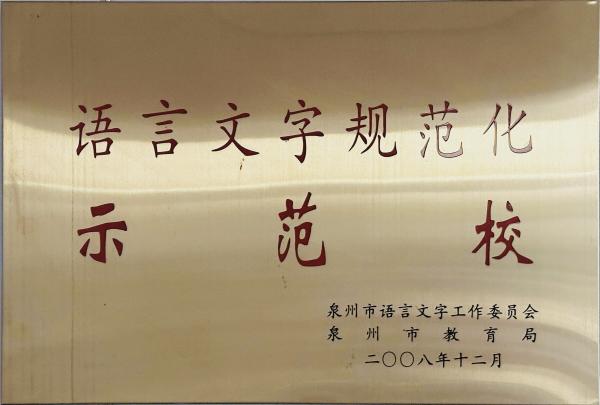 语言文字规范化
示范校
泉州市语言文字工作委员会
泉州市教育局
二〇〇八年十二月